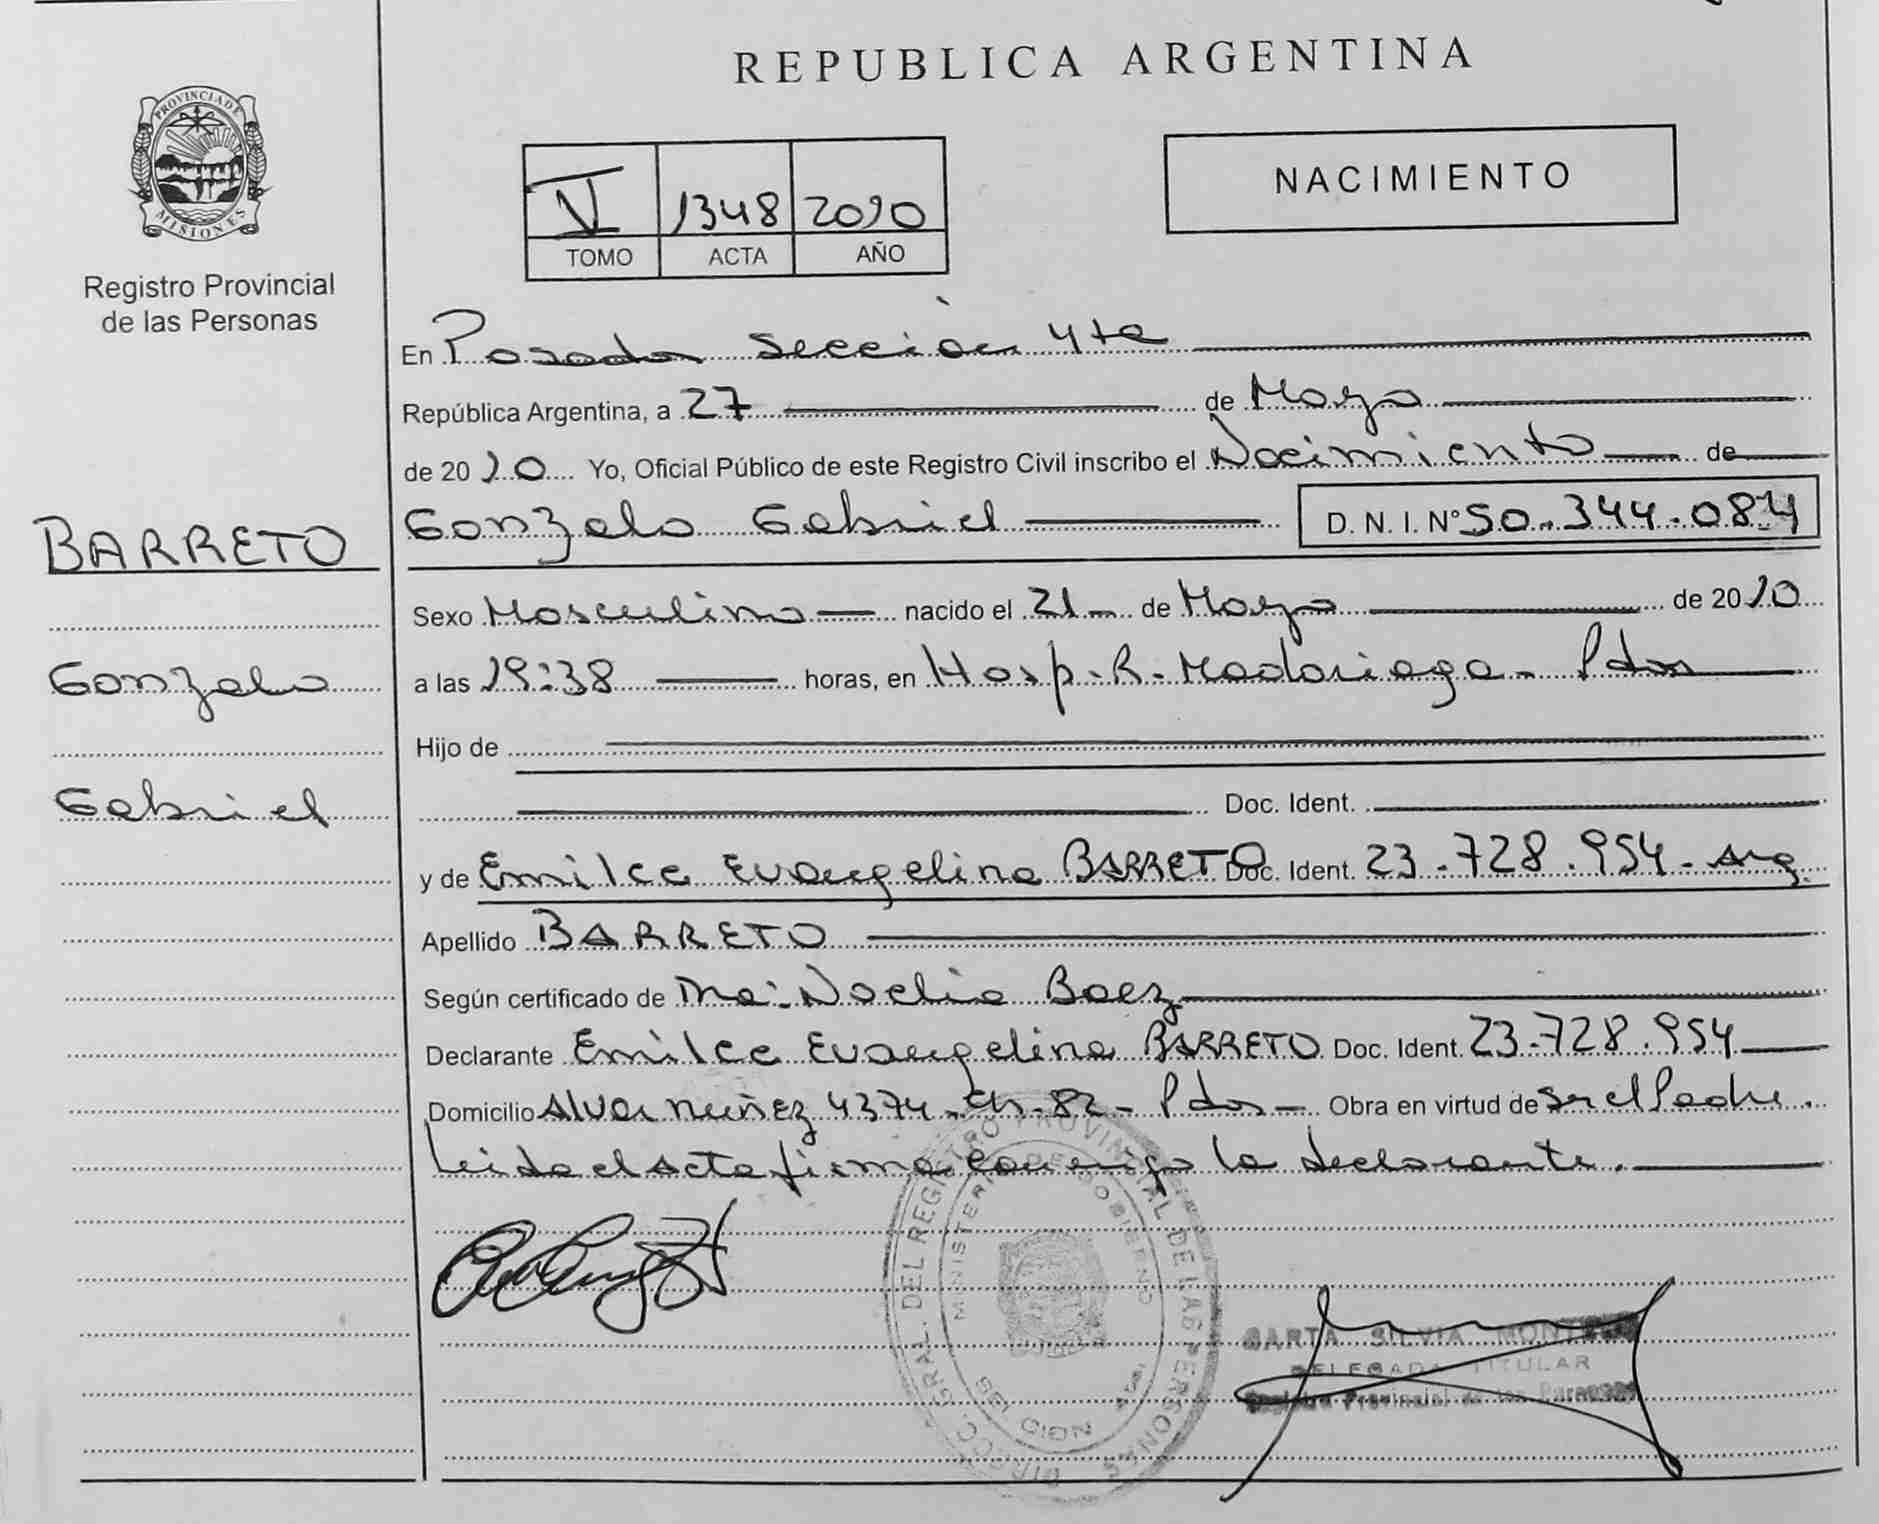 REPUBLICA ARGENTINA
PROVINCIA DE
MISIONES
Registro Provincial
de las Personas
V 1348 2010
TOMO ACTA AÑO
NACIMIENTO
En Posadas Sección 4ta
República Argentina, a 27 de Mayo
de 2010 Yo, Oficial Público de este Registro Civil inscribo el Nacimiento de
BARRETO
Gonzalo Gabriel D. N. I. N° 50.344.084
Sexo Masculino nacido el 21 de Mayo de 2010
Gonzalo
a las 19:38 horas, en Hosp. R. Madariaga - Pdas
Hijo de
Gabriel
Doc. Ident.
y de Emilce Evangelina BARRETO Doc. Ident. 23.728.954 - Arg.
Apellido BARRETO
Según certificado de Ma. Noelia Baez
Declarante Emilce Evangelina BARRETO Doc. Ident. 23.728.954
Domicilio Alvar Nuñez 4374 - Ch - 82 - Pdas - Obra en virtud de ser el Padre.
Leida el Acta firma conmigo la declarante.
DIRECC. GRAL. DEL REGISTRO PROVINCIAL DE LAS PERSONAS
MINISTERIO DE GOBIERNO
SILVIA
DELEGADA TITULAR
Registro Provincial de las Personas